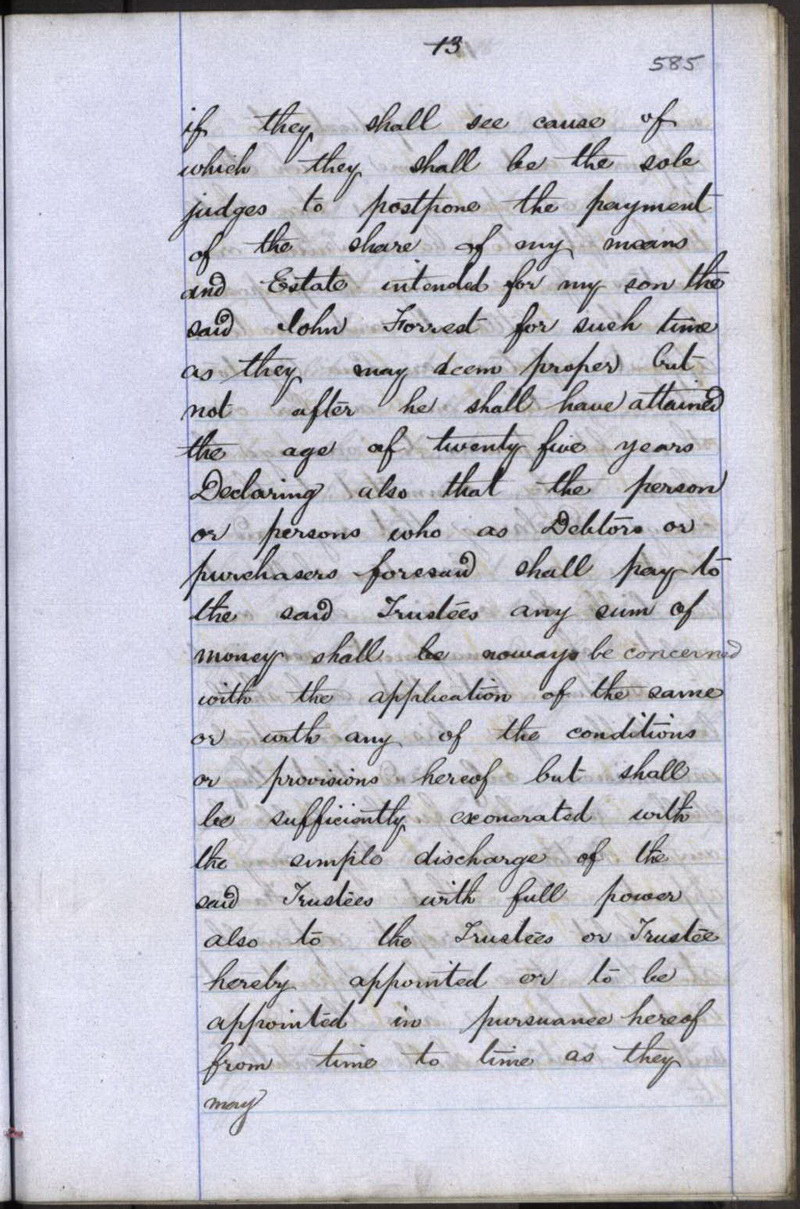 13
585
if they shall see cause of
which they shall be the sole
judges to postpone the payment
of the share of my means
and Estate intended for my son the
said John Forrest for such time
as they may deem proper but
not after he shall have attained
the age of twenty five years
Declaring also that the person
or persons who as Debtors or
purchasers foresaid shall pay to
the said Trustees any sum of
money shall be noways be concerned
with the application of the same
or with any of the conditions
or provisions hereof but shall
be sufficiently exonerated with
the simple discharge of the
said Trustees with full power
also to the Trustees or Trustee
hereby appointed or to be
appointed in pursuance hereof
from time to time as they
may